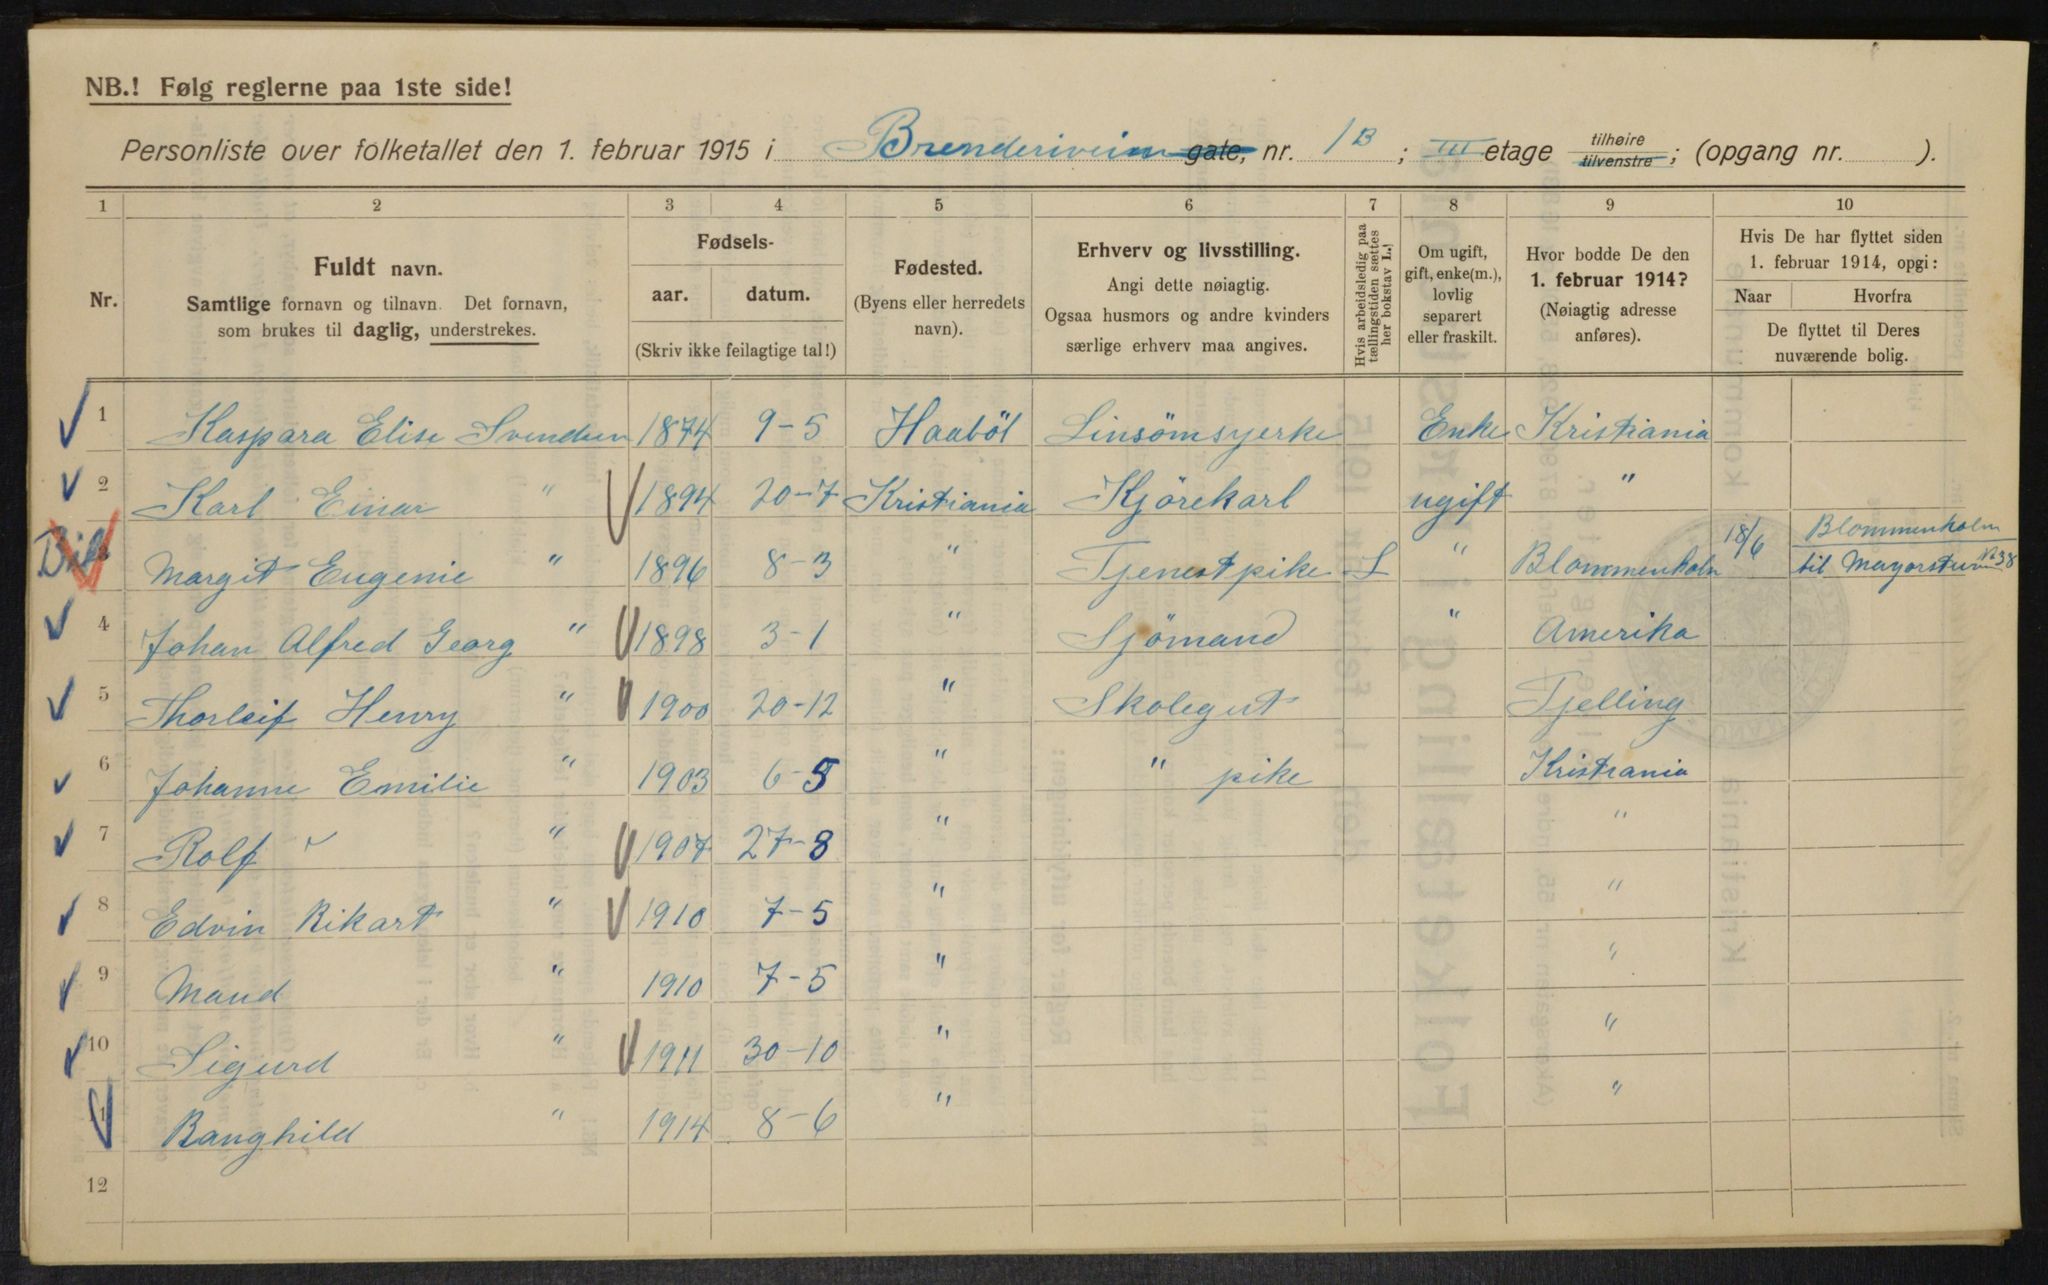 NB.! Følg reglerne paa 1ste side!
Personliste over folketallet den 1. februar 1915 i Brenneriveien gate, nr. 1B ; III etage tilhøire tilvenstre ; (opgang nr. ).
1 2 3 4 5 6 7 8 9 10
Nr.
Fuldt navn.
Samtlige fornavn og tilnavn. Det fornavn,
som brukes til daglig, understrekes.
Fødsels-
aar. datum.
(Skriv ikke feilagtige tal!)
Fødested.
(Byens eller herredets
navn).
Erhverv og livsstilling.
Angi dette nøiagtig.
Ogsaa husmors og andre kvinders
særlige erhverv maa angives.
Hvis arbeidsledig paa
tællingstiden sættes
her bokstav L.!
Om ugift,
gift, enke(m.),
lovlig
separert
eller fraskilt.
Hvor bodde De den
1. februar 1914?
(Nøiagtig adresse
anføres).
Hvis De har flyttet siden
1. februar 1914, opgi:
Naar Hvorfra
De flyttet til Deres
nuværende bolig.
1 Kaspara Elise Svendsen 1874 9-5 Haaböl Linsömsyerke Enke Kristiania
2 Karl Einar " 1894 20-7 Kristiania Kjörekarl ugift "
3 Margit Eugenie " 1896 8-3 " Tjenestpike L " Blommenholm 18/6 Blommenholm
til Mayorstuvn 38
4 Johan Alfred Georg " 1898 3-1 " Sjömand " Amerika
5 Thorleif Henry " 1900 20-12 " Skolegut Tjelling
6 Johanne Emilie " 1903 6-5 " " pike Kristiania
7 Rolf " 1907 27-8 " "
8 Edvin Rikart " 1910 7-5 " "
9 Maud " 1910 7-5 " "
10 Sigurd " 1911 30-10 " "
11 Ranghild " 1914 8-6 " "
12